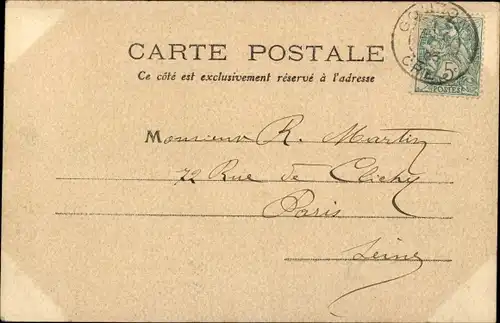 CARTE POSTALE
Ce côté est exclusivement réservé à l'adresse
Monsieur R. Martin
72 Rue de Clichy
Paris
Seine
5
POSTES